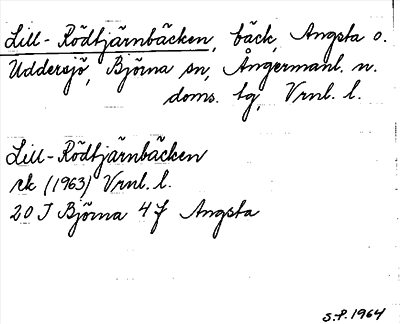 Lill-Rödtjärnbäcken, bäck, Angsta o.
Uddersjö, Björna sn, Ångermanl. n.
doms. tg, Vrnl. l.
Lill-Rödtjärnbäcken
rk (1963) Vrnl. l.
20 J Björna 4 f Angsta
S.P. 1964